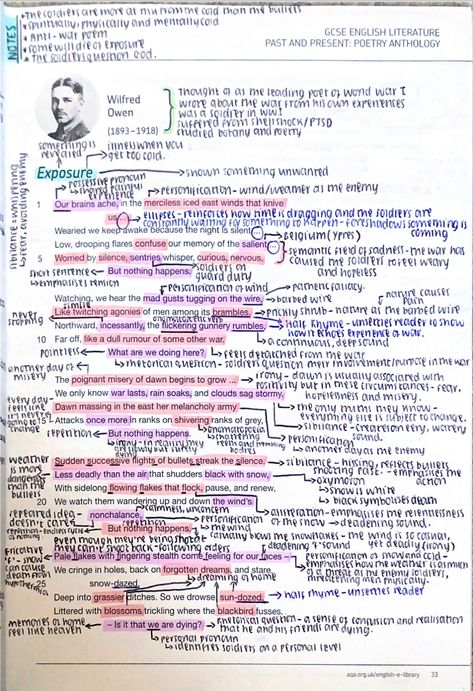 NOTES
• The soldiers are more at risk from the cold than the bullets
• spiritually, physically and mentally cold
• Anti-war poem
• some will die of exposure
• The soldiers question God.
GCSE ENGLISH LITERATURE
PAST AND PRESENT: POETRY ANTHOLOGY
Wilfred
Owen
(1893–1918)
Thought of as the leading poet of world war I
wrote about the war from his own experiences
was a soldier in WW1
suffered from shellshock/PTSD
studied botany and poetry
something is
revealed
illness when you
get too cold.
Exposure
shown something unwanted
possessive pronoun
shared painful
experience
personification - wind/weather as the enemy
sibilance - whispering
fear, avoiding enemy
1 Our brains ache, in the merciless iced east winds that knive
us ...
ellipses - reinforces how time is dragging and the soldiers are
constantly waiting for something to happen - foreshadows something is
coming
Wearied we keep awake because the night is silent ...
Belgium (Ypres)
Low, drooping flares confuse our memory of the salient ...
semantic field of sadness - the war has
caused the soldiers to feel weary
and hopeless
5 Worried by silence, sentries whisper, curious, nervous,
short sentence
emphasises tension
But nothing happens.
soldiers on
guard duty
personification of wind
pathetic fallacy.
Watching, we hear the mad gusts tugging on the wire,
barbed wire
nature causes
pain
simile
Like twitching agonies of men among its brambles.
prickly shrub - nature as the barbed wire
never
stopping
onomatopoeia
Northward, incessantly, the flickering gunnery rumbles,
Half rhyme - unsettles reader to show
how it echoes experience of war.
10 Far off, like a dull rumour of some other war.
a continuous, deep sound
pointless
What are we doing here?
feels detached from the war
rhetorical question - soldiers question their involvement/purpose in the war
another day of
misery
The poignant misery of dawn begins to grow ...
Irony - dawn is usually associated with
positivity but in these circumstances - fear,
hopelessness and misery.
We only know war lasts, rain soaks, and clouds sag stormy.
the only truth they know
everything else is subject to change.
every day
feels like
it's never
going to
change
Dawn massing in the east her melancholy army
sibilance - creates an eery, watery
sound.
15 Attacks once more in ranks on shivering ranks of grey,
personification
another day as the enemy
repetition
But nothing happens.
onomatopoeia
chattering
teeth and
bodies
Sudden successive flights of bullets streak the silence.
sibilance - hissing, reflects bullets
shooting past - emphasises the
action
weather
is more
dangerous
than the
bullets
Less deadly than the air that shudders black with snow,
oxymoron
snow is white
black symbolises death
With sidelong flowing flakes that flock, pause, and renew,
alliteration - emphasises the relentlessness
of the snow → deadening sound.
20 We watch them wandering up and down the wind's
nonchalance,
calmness, unconcern
personification
of the wind
casually blows the snowflakes - the wind is casual,
yet deadly (irony)
repeated idea
doesn't care
repetition
But nothing happens.
even though they're being shot at
they can't shoot back - following orders
deadening 'f' sound
fricative
"f" - snow
can cause
death from
hypothermia
Pale flakes with fingering stealth come feeling for our faces –
personification of snow and cold -
emphasises how the weather is as much
of a threat as the enemy soldiers,
threatening men physically.
We cringe in holes, back on forgotten dreams, and stare,
snow-dazed,
dreaming of home
Deep into grassier ditches. So we drowse, sun-dozed,
half rhyme - unsettles reader
Littered with blossoms trickling where the blackbird fusses.
memories of home
feel like heaven
– Is it that we are dying?
Rhetorical question - a sense of confusion and realisation
that he and his friends are dying.
personal pronoun
identifies soldiers on a personal level
aqa.org.uk/english-e-library 33